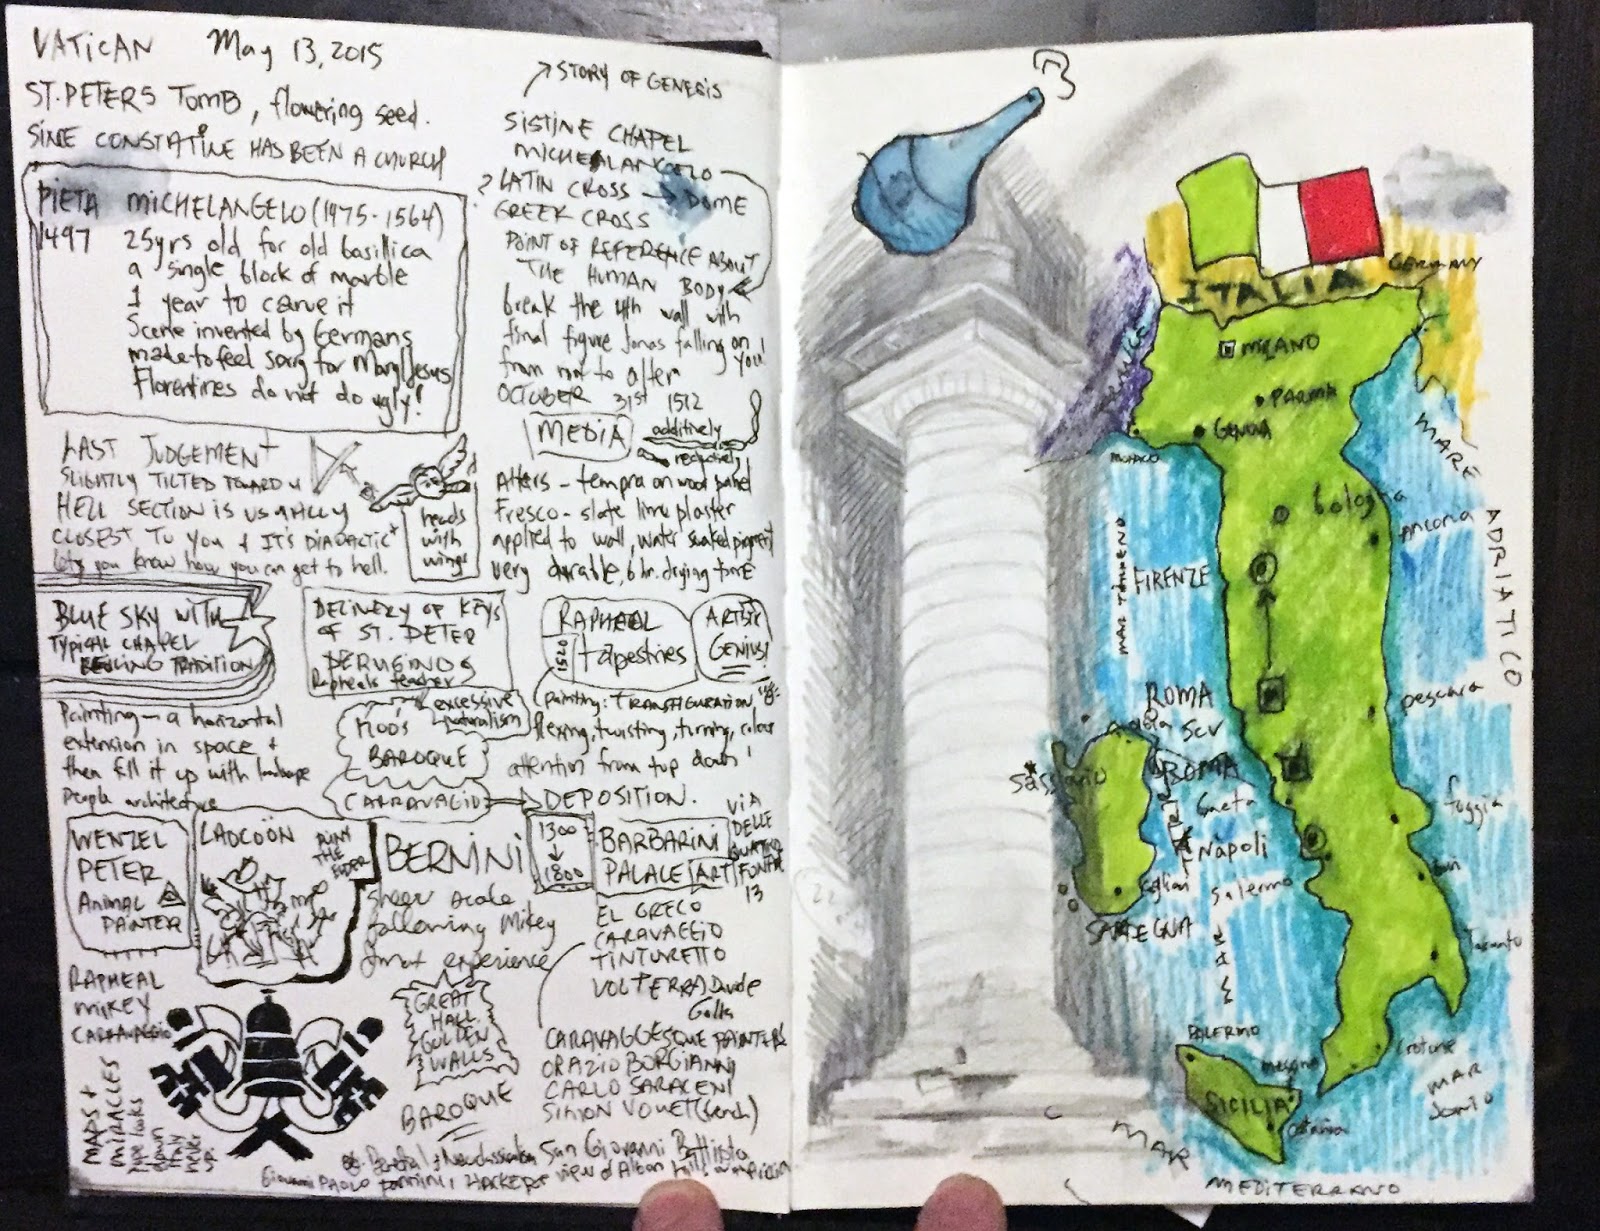 VATICAN May 13, 2015
ST. PETERS TOMB, flowering seed.
SINE CONSTATINE HAS BEEN A CHURCH
PIETA MICHELANGELO (1975-1564)
1497 25yrs old for old basillica
a single block of marble
1 year to carve it
Scene invented by Germans
made to feel sorry for Mary/Jesus
Florentines do not do ugly!
LAST JUDGEMENT
SLIGHTLY TILTED TOWARD U
HELL SECTION IS USUALLY
CLOSEST TO YOU + IT'S DIADACTIC +
lets you know how you can get to hell.
heads
with
wings
BLUE SKY WITH
TYPICAL CHAPEL
CEILING TRADITION
DELIVERY OF KEYS
OF ST. PETER
PERUGINO
Rapheals teacher
Painting - a horizontal
extension in space +
then fill it up with landscape
People architecture
1600's
BAROQUE
excessive
naturalism
CARAVAGIO
DEPOSITION.
WENZEL
PETER
ANIMAL
PAINTER
LAOCOÖN
THE
ELDER
BERNINI
sheer scale
following Mikey
great experience
RAPHEAL
MIKEY
CARRAVAGGIO
MAPS +
MIRACLES
type looks
down
Italy
never
up.
GREAT
HALL.
GOLDEN
WALLS
BAROQUE
STORY OF GENESIS
SISTINE CHAPEL
MICHEALANGELO
? LATIN CROSS → DOME
GREEK CROSS
POINT OF REFERENCE ABOUT
THE HUMAN BODY
break the 4th wall with
final figure Jonas falling on
you!
from roof to alter
OCTOBER 31st 1512
MEDIA
additively
Alters - tempra on wood panel
Fresco - slate lime plaster
applied to wall, water soaked pigment
very durable, 6 hr. drying time
RAPHAEL
1520
tapestries
ARTISTIC
GENIUS!
Painting: TRANSFIGURATION,
flexing, twisting, turning, colour
attention from top down!
1300
1800
BARBARINI
PALALE ART
VIA
DELLE
QUATTRO
FONTANE
13
EL GRECO
CARAVAGGIO
TINTURETTO
VOLTERRA Davide
CARAVAGGESQUE PAINTERS
ORAZIO BORGIANNI
CARLO SARACENI
SIMON VOUET (french)
San Giovanni Battista
Giovanni PAOLO Pannini,
view of Alban hills
ITALIA
GERMANY
FRANCE
MILANO
PARMA
GENOVA
MONACO
bologna
ANCONA
MARE
ADRIATICO
MAR TIRRENO
FIRENZE
ROMA
pescara
Olbia
Sassario
ROMA
Gaeta
foggia
Napoli
Bari
Cagliari
Salerno
SARDEGNA
Taranto
PALERMO
messina
Crotone
MAR
Ionio
SICILIA
Catania
MAR
MEDITERRANO